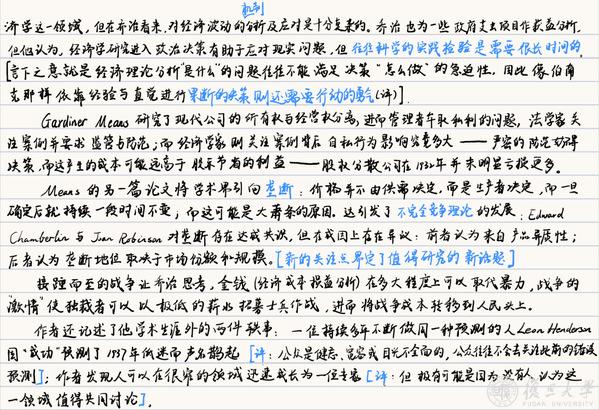 机制
济学这一领域，但在乔治看来，对经济波动的分析及应对是十分复杂的。乔治也为一些政府支出项目作获益分析，
但他认为，经济学研究进入政治决策有助于应对现实问题，但往往科学的实践检验是需要很长时间的。
[言下之意就是经济理论分析“是什么”的问题往往不能满足决策“怎么做”的急迫性，因此像伯南
克那样依靠经验与直觉进行果断的决策则还需要行动的勇气(评)]。
Gardiner Means 研究了现代公司的所有权与经营权分离，进而管理者牟取私利的问题，法学家关
注案例并要求监管与防范；而经济学家则关注案例背后自私行为影响究竟多大 —— 严密的防范妨碍
决策，而这产生的成本可能远高于股东节省的利益 —— 股权分散公司在1932年并未明显亏损更多。
Means 的另一篇论文将学术界引向垄断：价格并不由供需决定，而是生产者决定，而一旦
确定后就持续一段时间不变；而这可能是大萧条的原因。这引发了不完全竞争理论的发展：Edward
Chamberlin 与 Joan Robinson 对垄断存在达成共识，但在成因上存在异议：前者认为来自产品异质性；
后者认为垄断地位取决于市场份额和规模。[新的关注点界定了值得研究的新话题]
接踵而至的战争让乔治思考，金钱(经济成本损益分析)在多大程度上可以取代暴力，战争的
“激情”使独裁者可以以极低的薪水招募士兵作战，进而将战争成本转移到人民头上。
作者还记述了他学术生涯外的两件轶事：一位持续多年不断做同一种预测的人Leon Henderson
因“成功”预测了1937年低迷而声名鹊起[评：公众是健忘、宽容或目光不全面的，公众往往不会去关注此前的错误
预测]；作者发现人可以在很窄的领域迅速成长为一位专家[评：但极有可能是因为没有人认为这
一领域值得共同讨论]。
復旦大學
FUDAN UNIVERSITY